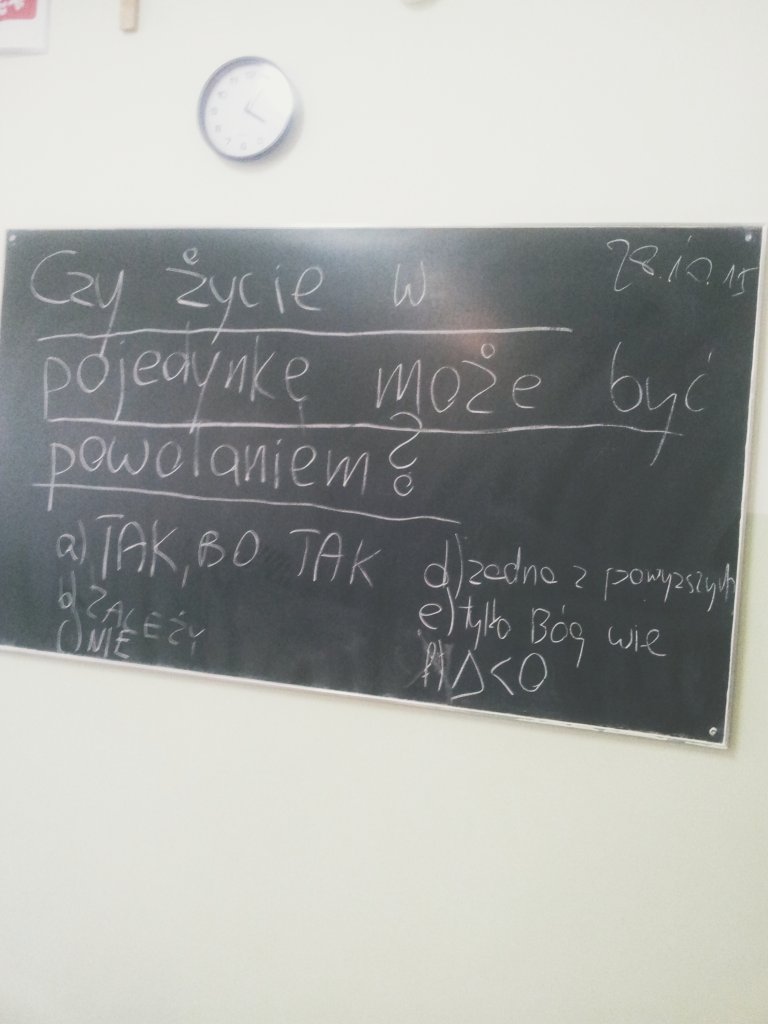 28.10.15
Czy życie w
pojedynkę może być
powołaniem?
a) TAK, BO TAK
b) ZALEŻY
c) NIE
d) żadna z powyższych
e) tylko Bóg wie
f) Δ<0